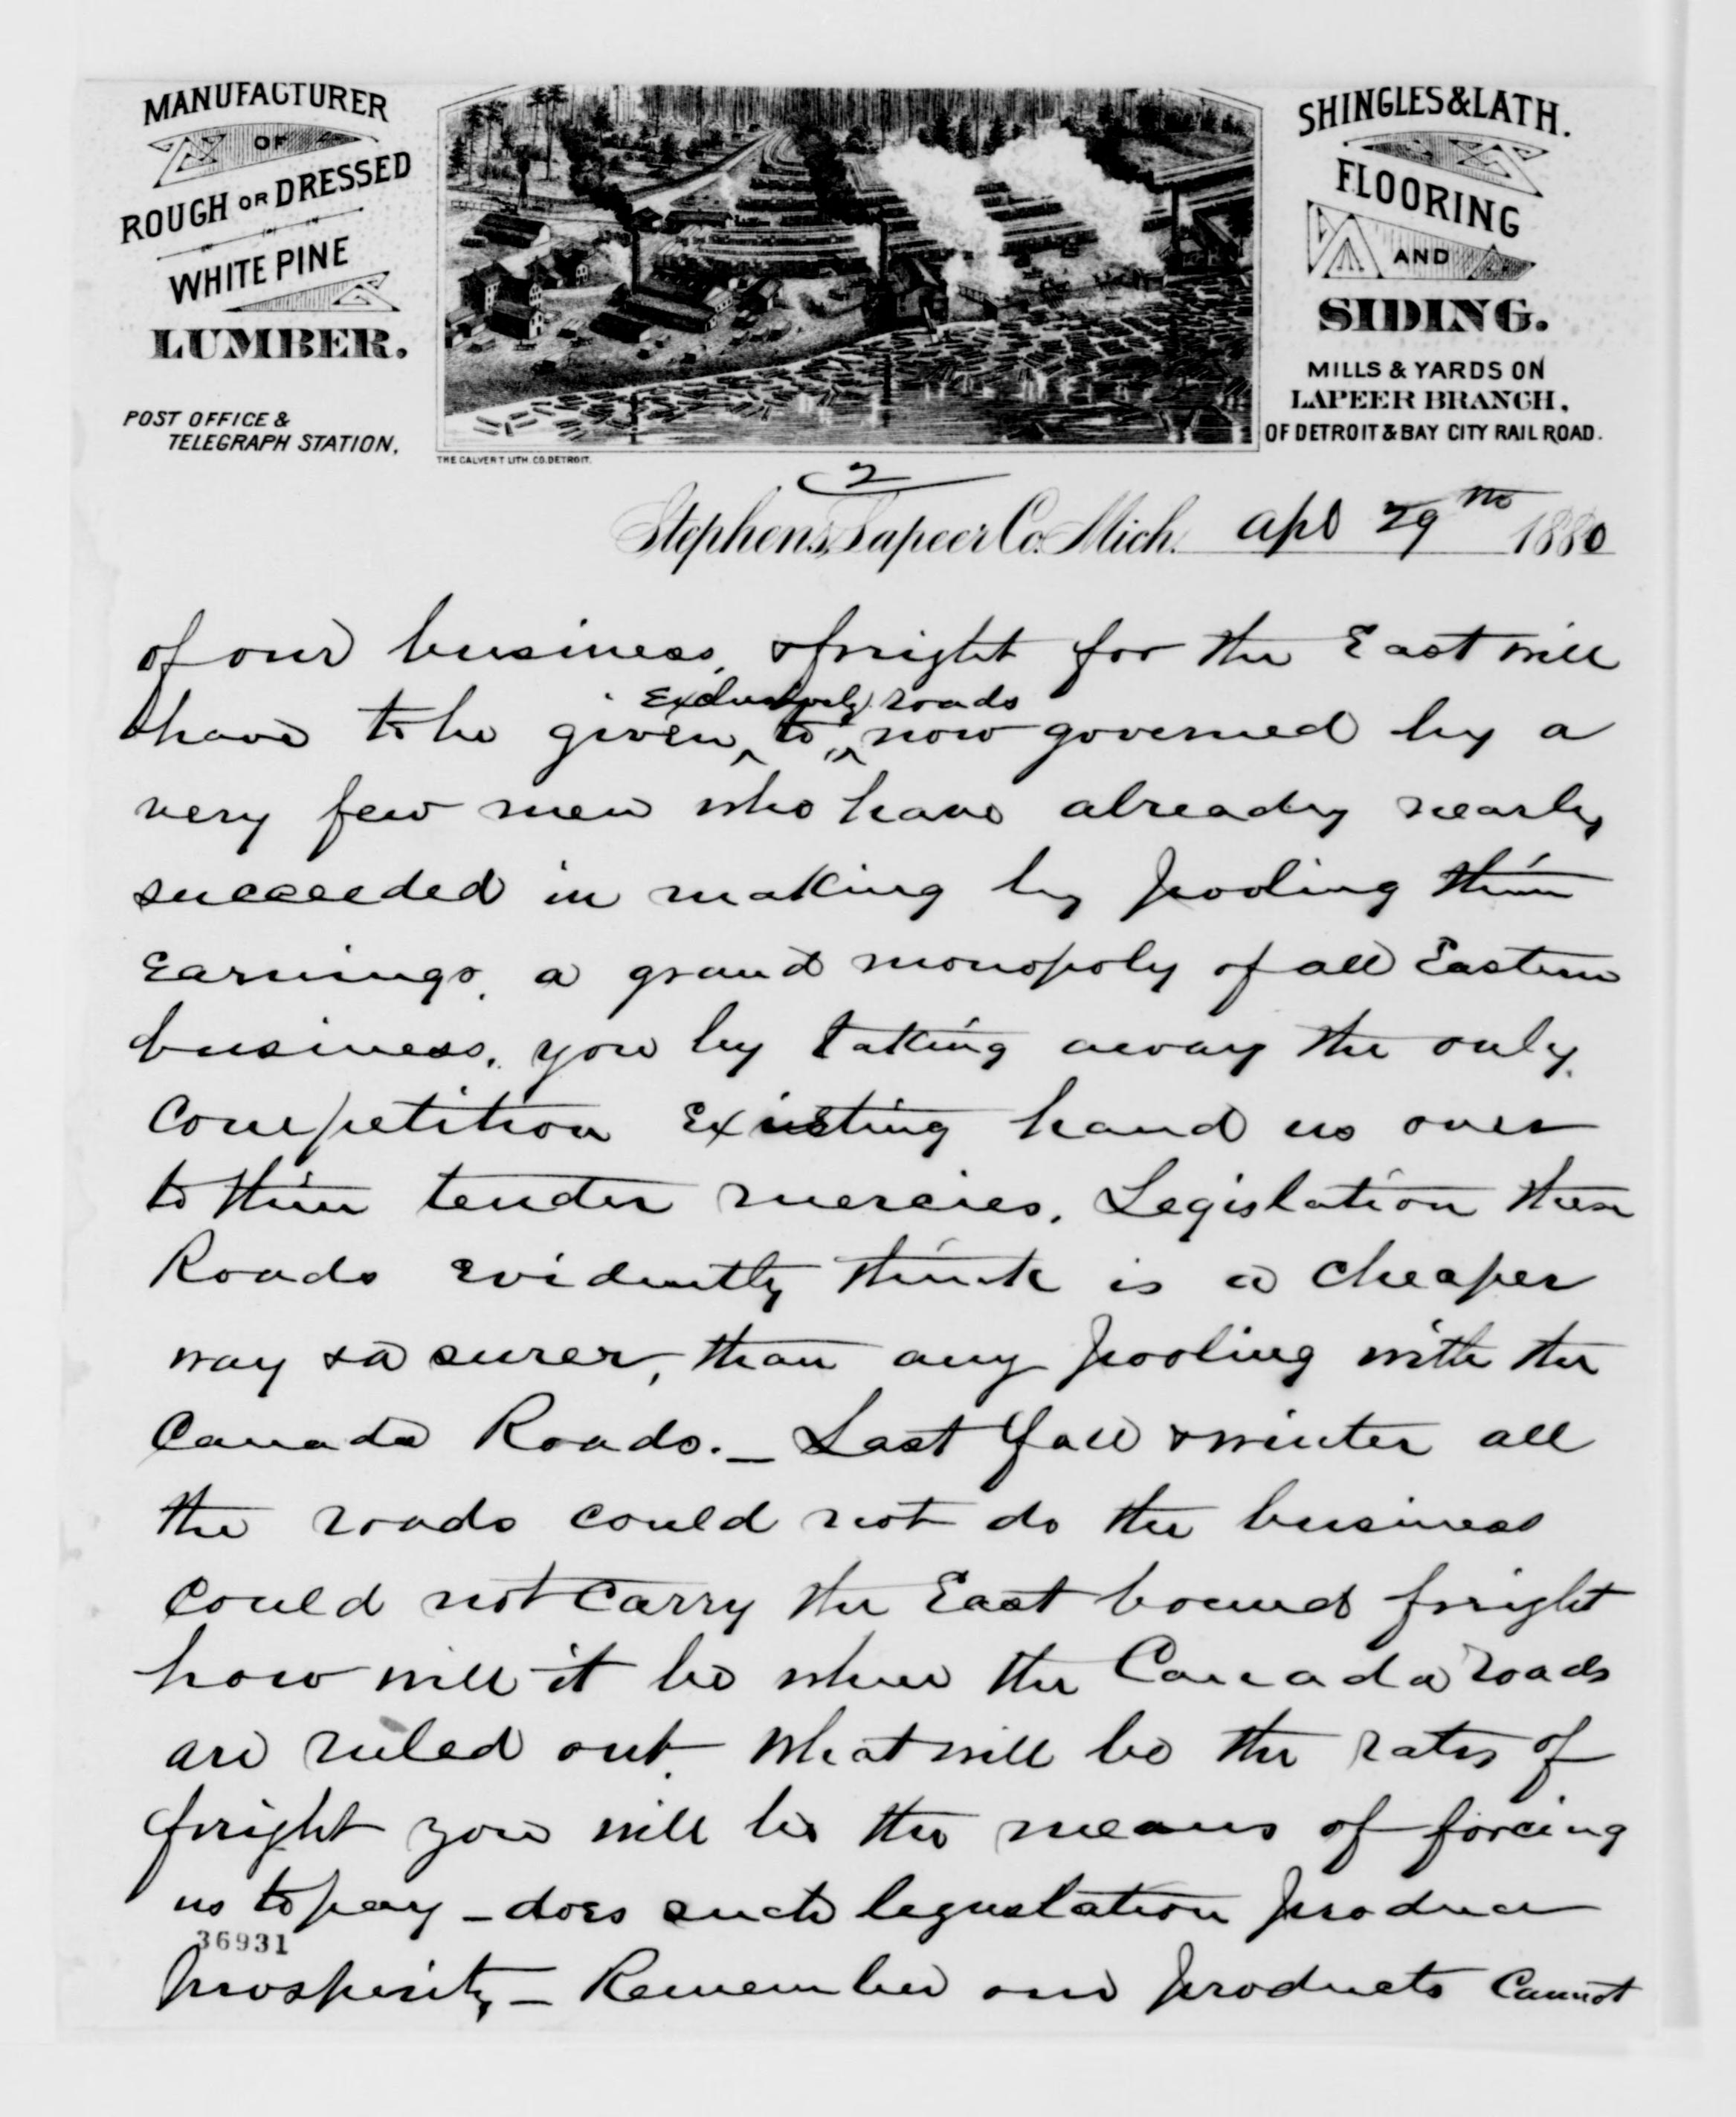 MANUFACTURER
OF
ROUGH OR DRESSED
WHITE PINE
LUMBER.
POST OFFICE &
TELEGRAPH STATION,
THE CALVERT LITH. CO. DETROIT.
SHINGLES & LATH.
FLOORING
AND
SIDING.
MILLS & YARDS ON
LAPEER BRANCH,
OF DETROIT & BAY CITY RAIL ROAD.
2
Stephens, Lapeer Co. Mich. Apl 29th 1880
of our business, & freight for the East will
Exclusively roads
have to be given to now governed by a
very few men who have already nearly
succeeded in making by pooling their
Earnings, a grand monopoly of all Eastern
business, you by taking away the only
Competition Existing hand us over
to their tender mercies. Legislation these
Roads Evidently think is a cheaper
way & a surer, than any pooling with the
Canada Roads. _ Last Fall & winter all
the roads could not do the business
Could not Carry the East bound freight
how will it be when the Canada roads
are ruled out. What will be the rates of
freight you will be the means of forcing
us to pay _ does such legislation produce
36931
prosperity _ Remember our products Cannot